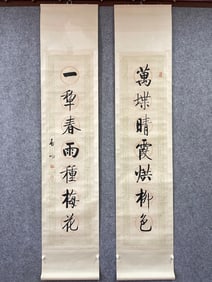 萬堞晴霞烘柳色
一犂春雨種梅花